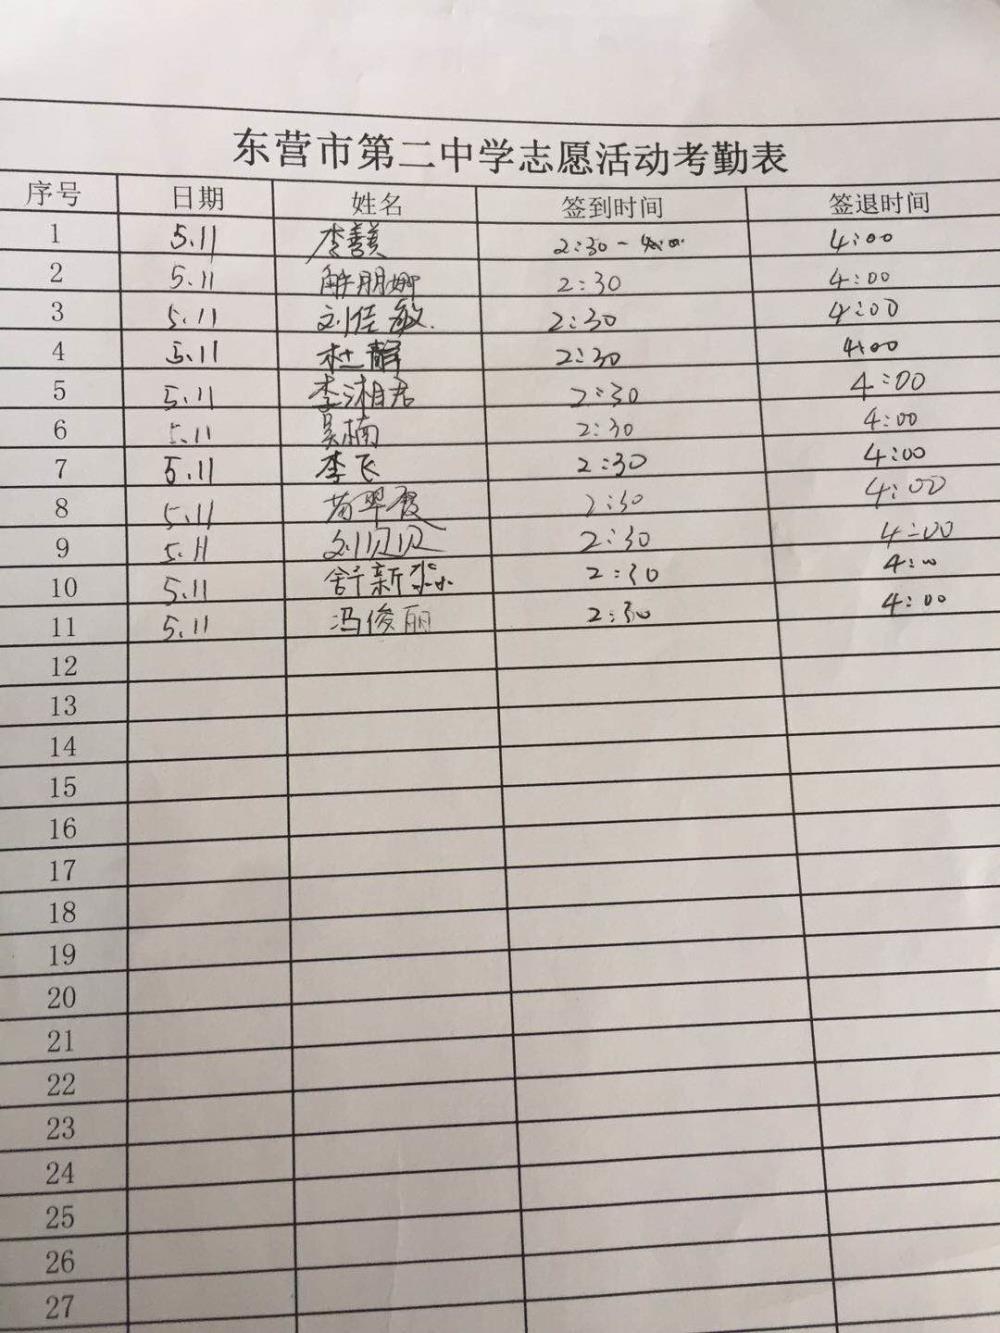 东营市第二中学志愿活动考勤表
序号 日期 姓名 签到时间 签退时间
1 5.11 李善美 2:30-4:00 4:00
2 5.11 解朋娜 2:30 4:00
3 5.11 刘佳敏. 2:30 4:00
4 5.11 杜静 2:30 4:00
5 5.11 李湘君 2:30 4:00
6 5.11 吴楠 2:30 4:00
7 5.11 李飞 2:30 4:00
8 5.11 苗翠霞 2:30 4:00
9 5.11 刘贝贝 2:30 4:00
10 5.11 舒新淼 2:30 4:00
11 5.11 冯俊丽 2:30 4:00
12
13
14
15
16
17
18
19
20
21
22
23
24
25
26
27